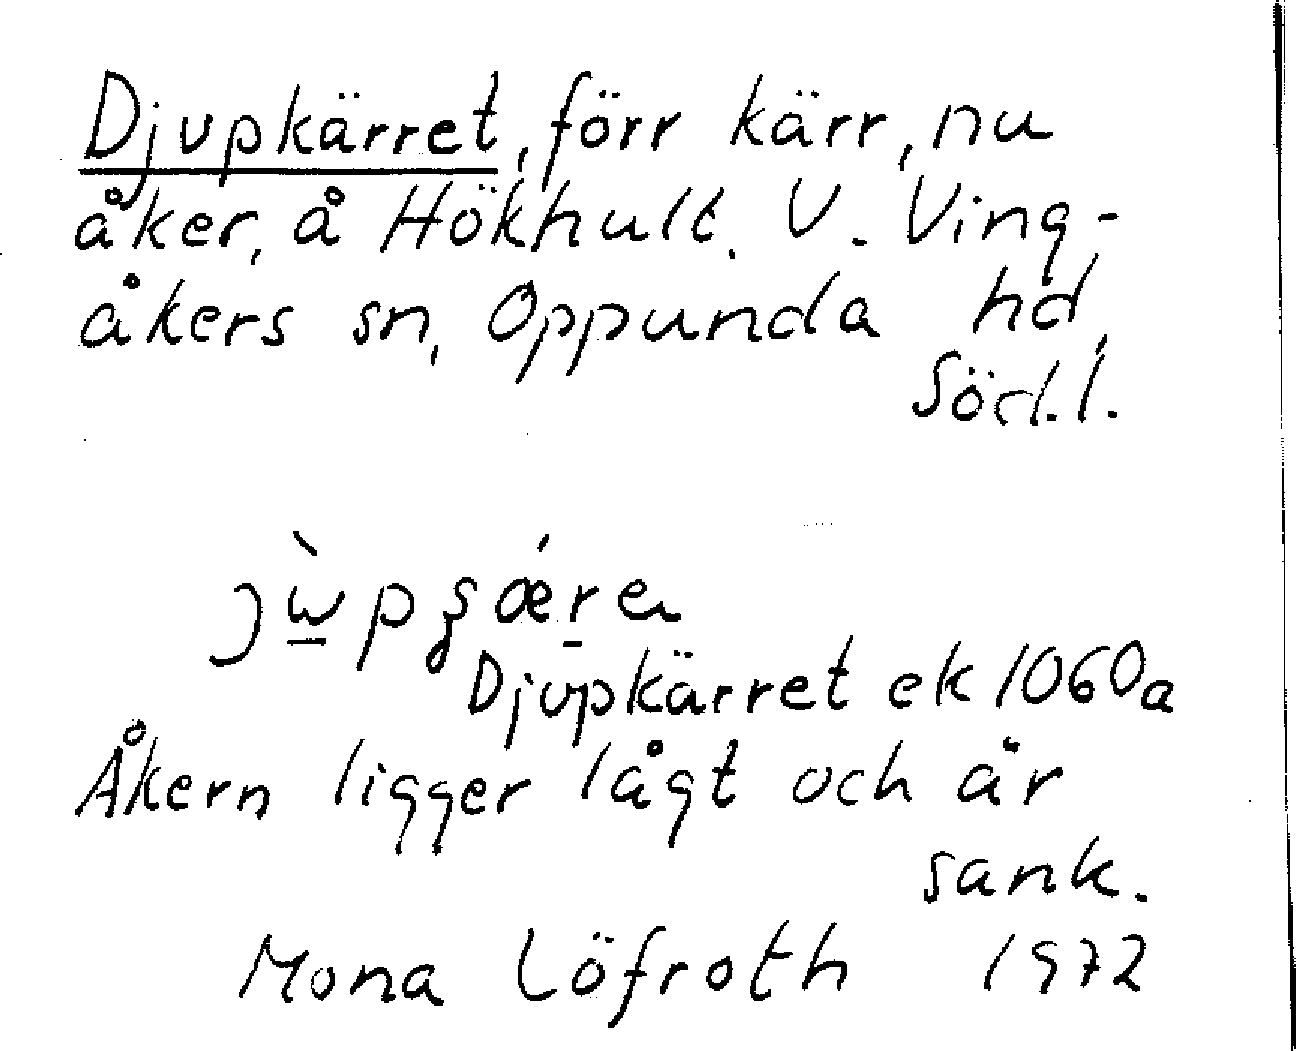 Djupkärret, förr kärr, nu
åker, å Hökhult, V. Ving-
åkers sn, Oppunda hd,
Söd.l.
Djupkärret ek 1060a
Åkern ligger lågt och är
sank.
Mona Löfroth 1972